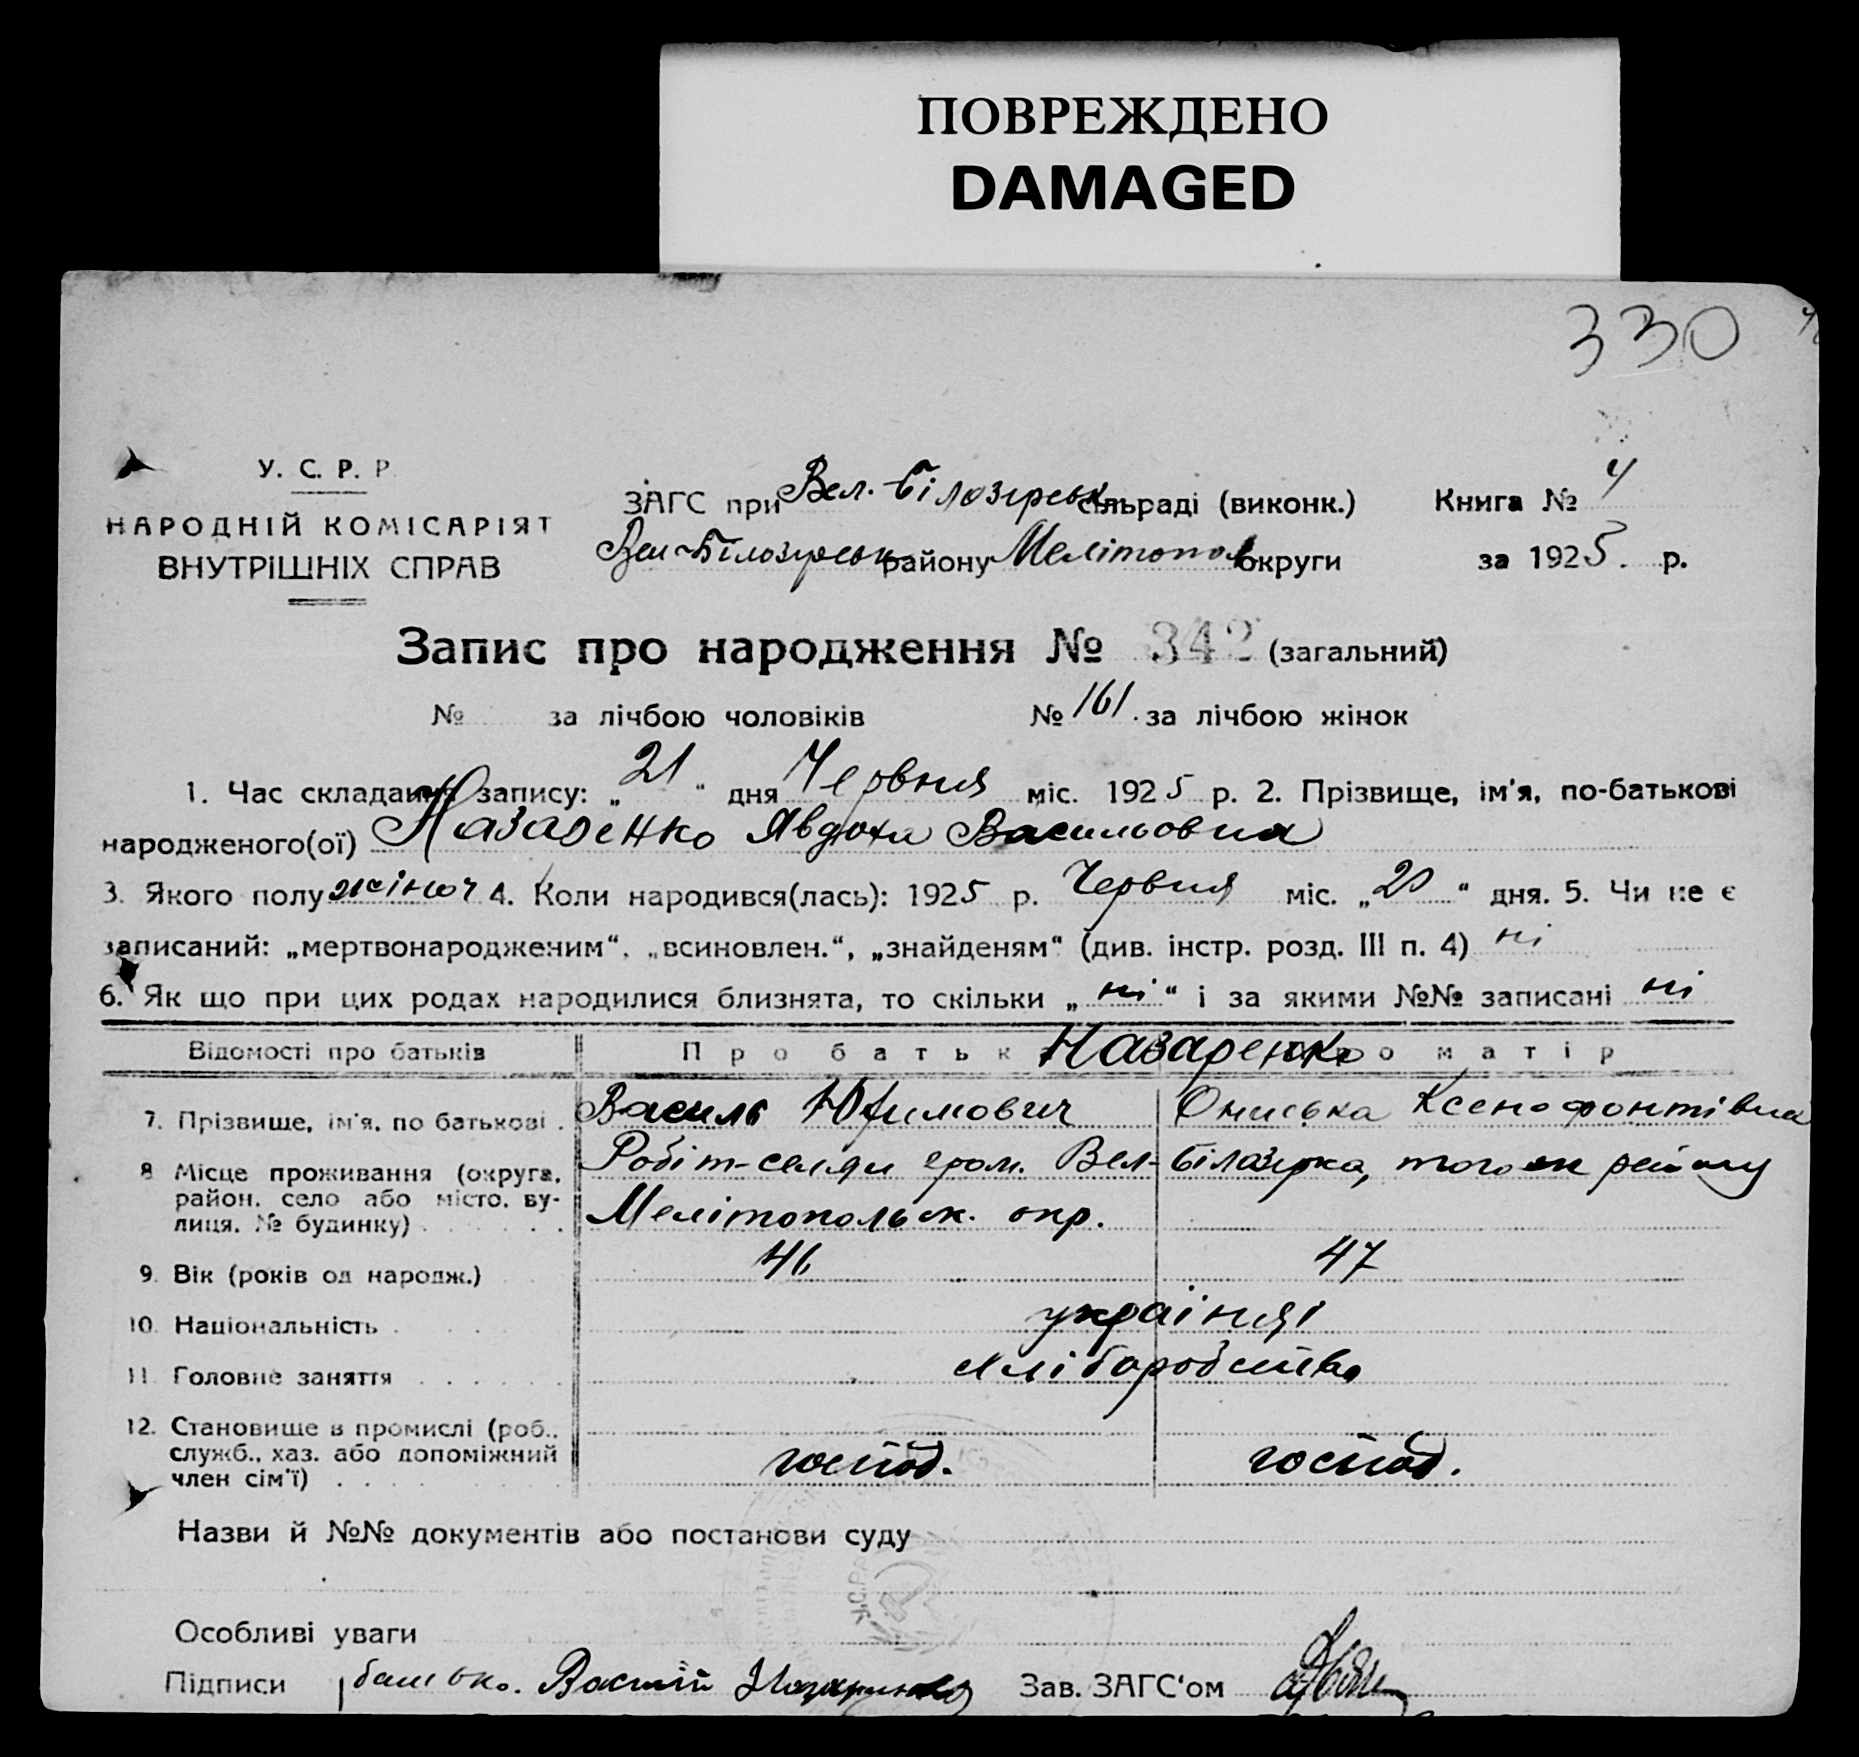 ПОВРЕЖДЕНО
DAMAGED
330
У. С. Р. Р.
НАРОДНІЙ КОМІСАРІЯТ
ВНУТРІШНІХ СПРАВ
ЗАГС при Вел.-Білозірськ сільраді (виконк.) Книга № 4
Вел-Білозірськ району Мелітопол округи за 1925 р.
Запис про народження № 342 (загальний)
№ за лічбою чоловіків № 161. за лічбою жінок
1. Час складання запису: „21“ дня Червня міс. 1925 р. 2. Прізвище, ім'я, по-батькові
народженого(ої) Назаренко Явдоха Васильовна
3. Якого полу жіноч 4. Коли народився(лась): 1925 р. Червня міс. „20“ дня. 5. Чи не є
записаний: „мертвонародженим“, „всиновлен.“, „знайденям“ (див. інстр. розд. III п. 4) ні
6. Як що при цих родах народилися близнята, то скільки „ні“ і за якими №№ записані ні
Відомості про батьків Про батька Назаренко Про матір
7. Прізвище, ім'я, по батькові . Василь Юхимович Ониська Ксенофонтівна
8 Місце проживання (округа, район, село або місто, вулиця, № будинку) Робіт-селян гром. Вел-Білазірка, того ж району
Мелітопольск. окр.
9. Вік (років од народж.) 46 47
10. Національність українці
11. Головне заняття хліборобство
12. Становище в промислі (роб.,
служб., хаз. або допоміжний
член сім'ї) господ. господ.
Назви й №№ документів або постанови суду
Особливі уваги
Підписи батько. Васілій Назаренко Зав. ЗАГС'ом